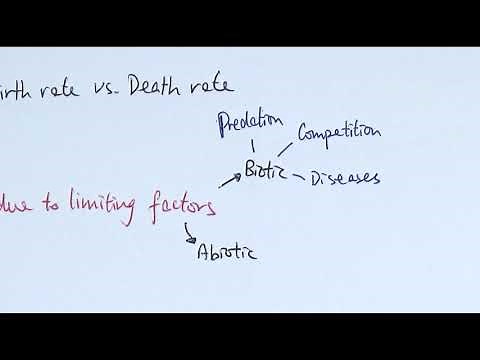 irth rate vs. Death rate
Predation
Competition
Biotic
Diseases
due to limiting factors
Abiotic